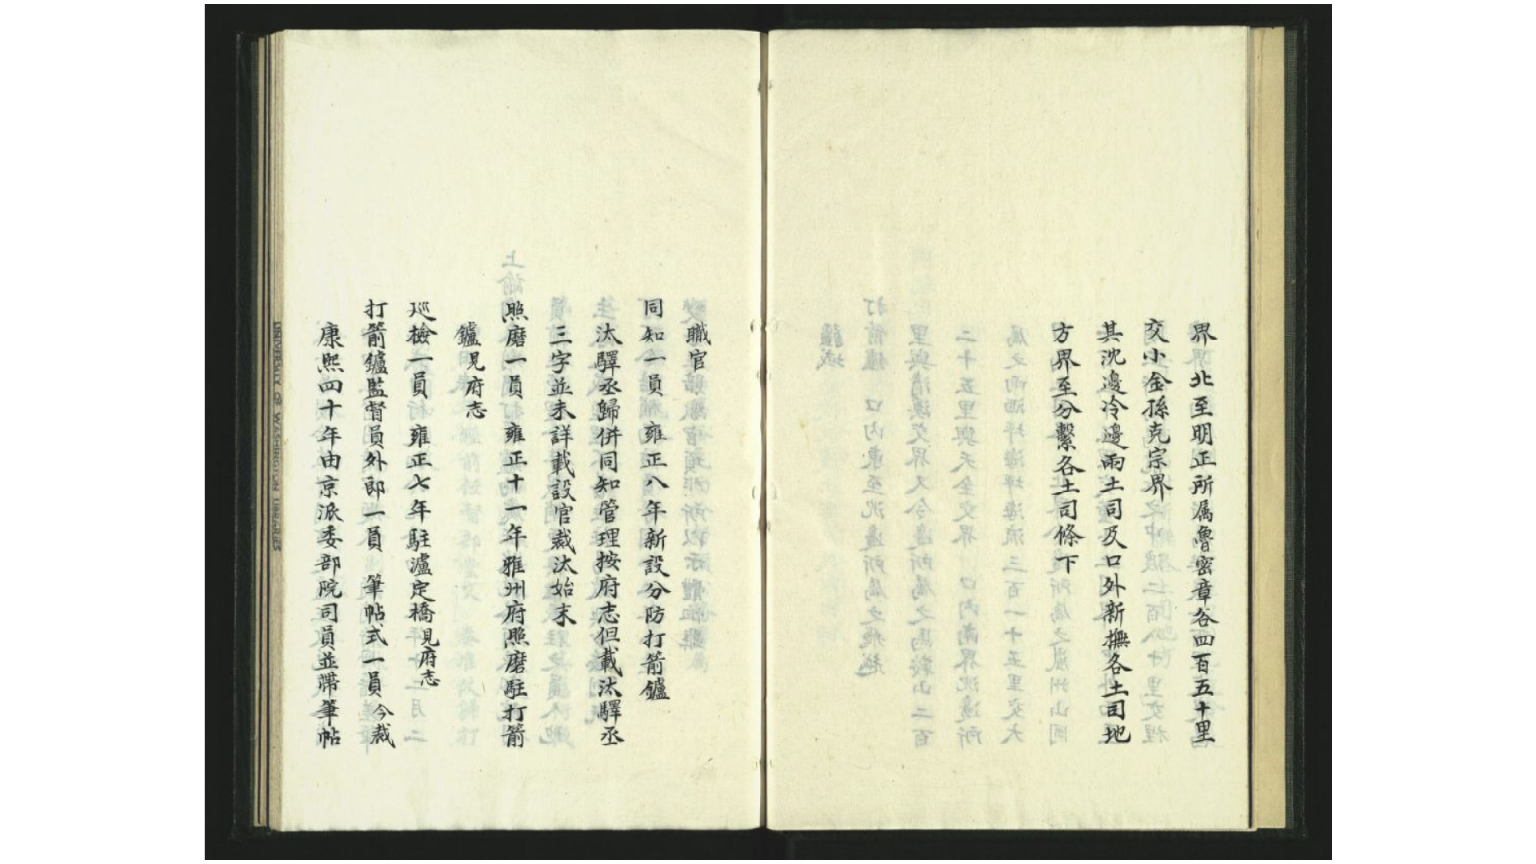 界北至明正所属魯密章谷四百五十里
交小金孫克宗界
其沈邊冷邊兩土司及口外新撫各土司地
方界至分繫各土司條下
職官
同知一員雍正八年新設分防打箭鑪
汰驛丞歸併同知管理按府志但載汰驛丞
三字並未詳載設官裁汰始末
照磨一員雍正十一年雅州府照磨駐打箭
鑪見府志
巡檢一員雍正七年駐瀘定橋見府志
打箭鑪監督員外郎一員 筆帖式一員今裁
康熙四十年由京派委部院司員並帶筆帖